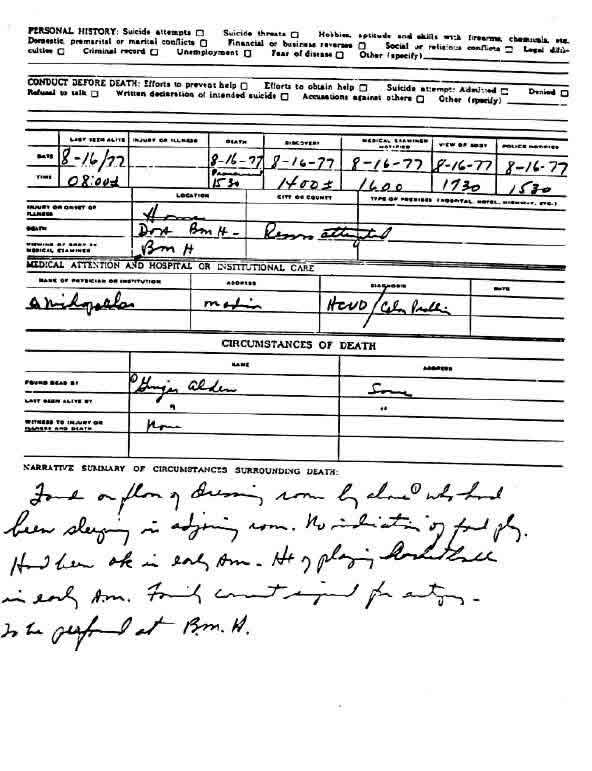 PERSONAL HISTORY: Suicide attempts □ Suicide threats □ Hobbies, aptitude and skills with firearms, chemicals, etc.
Domestic, premarital or marital conflicts □ Financial or business reverses □ Social or religious conflicts □ Legal diffi-
culties □ Criminal record □ Unemployment □ Fear of disease □ Other (specify)
CONDUCT BEFORE DEATH: Efforts to prevent help □ Efforts to obtain help □ Suicide attempt: Admitted □ Denied □
Refusal to talk □ Written declaration of intended suicide □ Accusations against others □ Other (specify)
LAST SEEN ALIVE INJURY OR ILLNESS DEATH DISCOVERY MEDICAL EXAMINER NOTIFIED VIEW OF BODY POLICE NOTIFIED
DATE 8-16/77 8-16-77 8-16-77 8-16-77 8-16-77 8-16-77
TIME 08:00± Pronounced 1530 1400± 1600 1730 1530
LOCATION CITY OR COUNTY TYPE OF PREMISES (HOSPITAL, HOTEL, HIGHWAY, ETC.)
INJURY OR ONSET OF ILLNESS Home
DEATH DOA BMH - Resus attempted
VIEWING OF BODY BY MEDICAL EXAMINER BMH
MEDICAL ATTENTION AND HOSPITAL OR INSTITUTIONAL CARE
NAME OF PHYSICIAN OR INSTITUTION ADDRESS DIAGNOSIS DATE
HCVD / Colon Problem
CIRCUMSTANCES OF DEATH
NAME ADDRESS
FOUND DEAD BY ① Ginger Alden Same
LAST SEEN ALIVE BY " "
WITNESS TO INJURY OR ILLNESS AND DEATH None
NARRATIVE SUMMARY OF CIRCUMSTANCES SURROUNDING DEATH:
Found on floor of dressing room by above ① who had
been sleeping in adjoining room. No indication of foul play.
Had been ok in early Am. Hx of playing
in early Am. Family consent signed for autopsy -
to be performed at B.M.H.